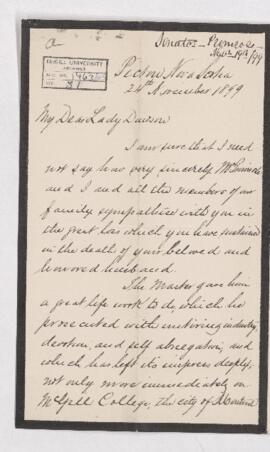 a
Senator Primrose
Nov 24th/99
McGILL UNIVERSITY
ARCHIVES
ACC. NO.
REF.
Pictou Nova Scotia
24th November 1899
My Dear Lady Dawson
I am sure that I need
not say how very sincerely Mrs Primrose
and I and all the members of our
family sympathise with you in
the great loss which you have sustained
in the death of your beloved and
honored husband.
The Master gave him
a great life work to do, which he
prosecuted with untiring industry,
devotion, and self abnegation, and
which has left its impress deeply,
not only more immediately on
McGill College, the City of Montreal